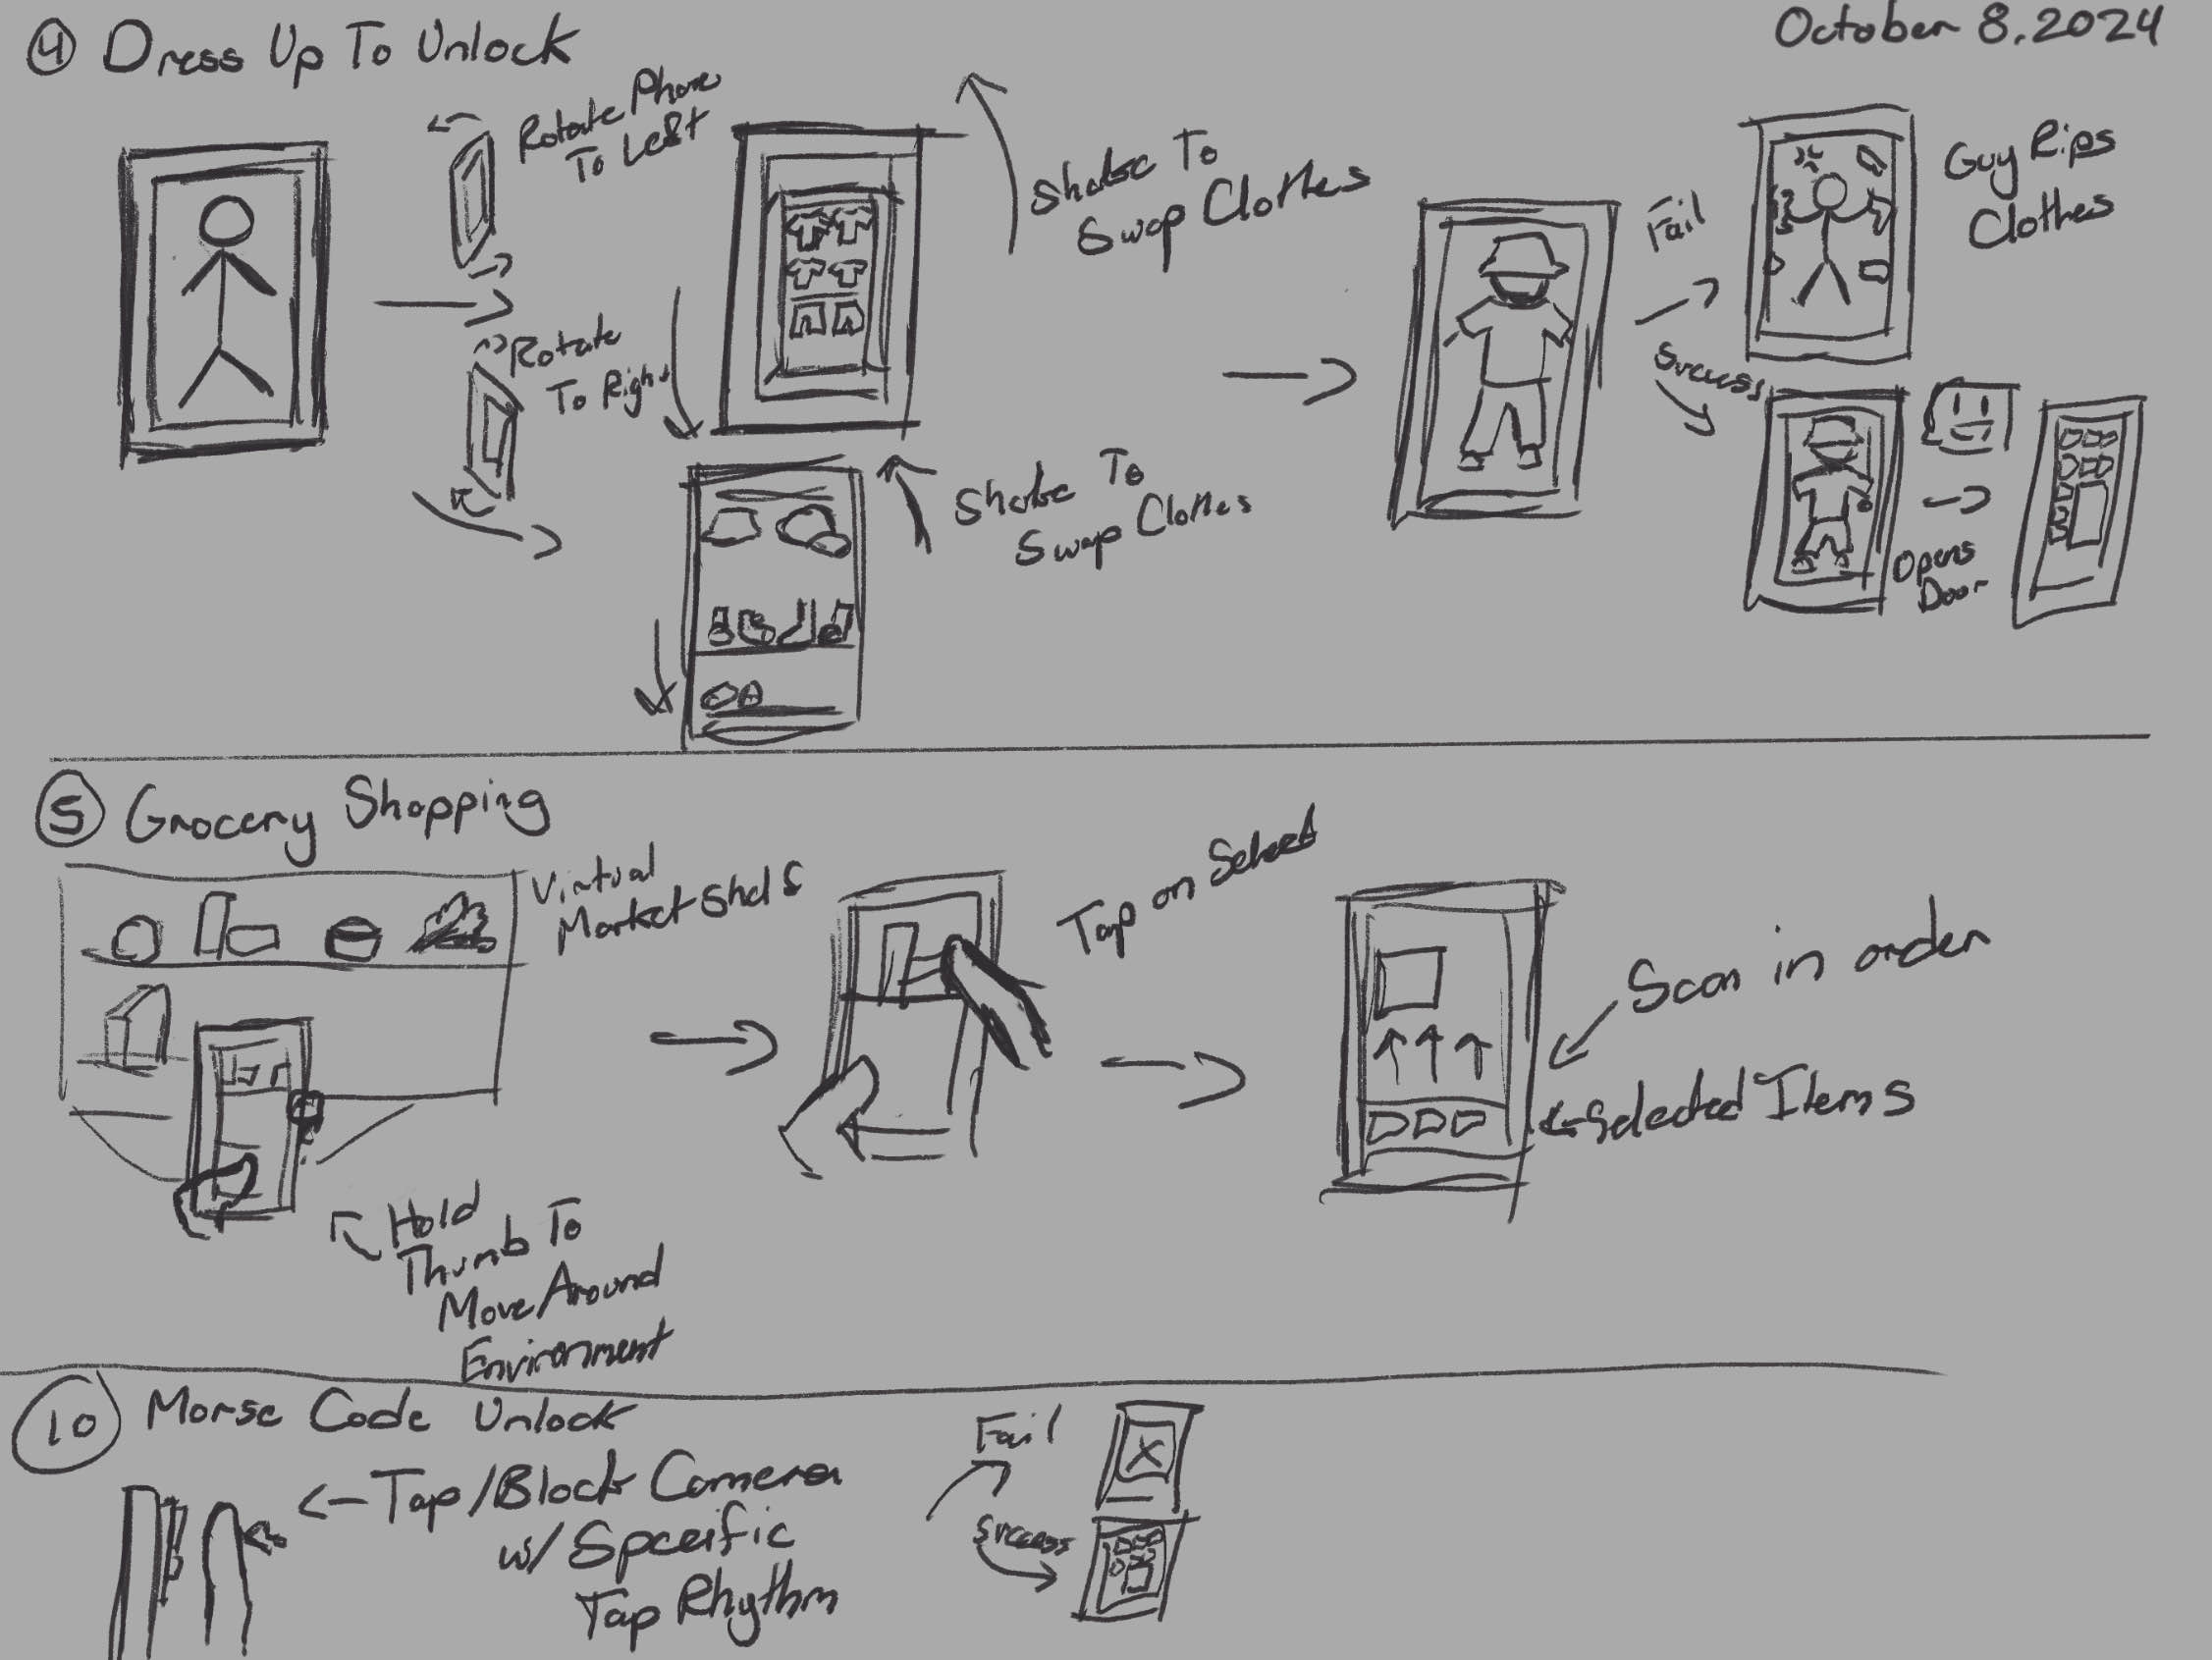 4 Dress Up To Unlock
October 8, 2024
Rotate Phone
To Left
Rotate
To Right
Shake To
Swap Clothes
Shake To
Swap Clothes
Fail
Guy Rips
Clothes
Success
Opens
Door
5 Grocery Shopping
Virtual
Market Shelf
Hold
Thumb To
Move Around
Environment
Tap on Select
Scan in order
Selected Items
10 Morse Code Unlock
Tap/Block Camera
w/ Specific
Tap Rhythm
Fail
Success